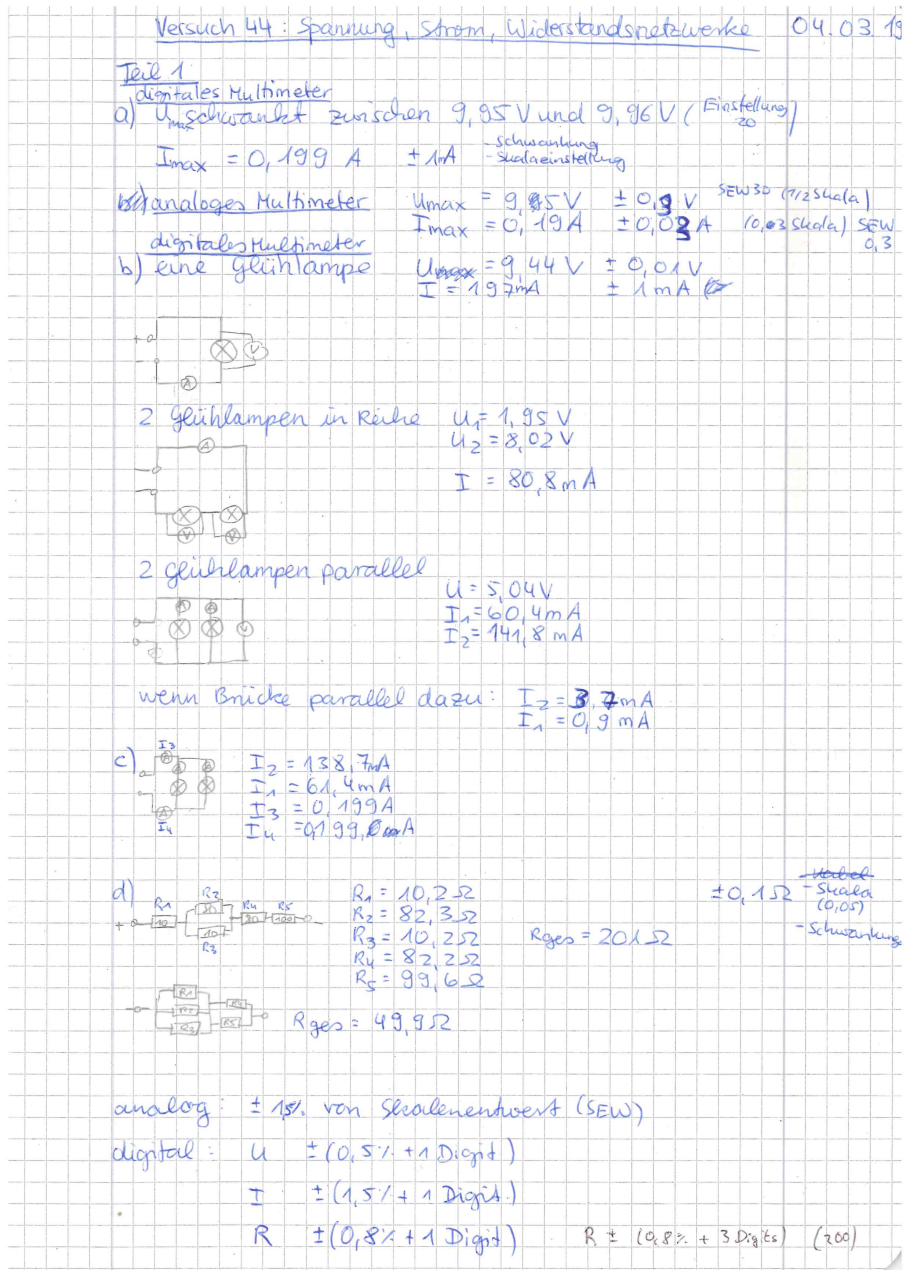 Versuch 44: Spannung, Strom, Widerstandsnetzwerke 04.03.19
Teil 1
digitales Multimeter
a) Umax schwankt zwischen 9,95 V und 9,96 V (Einstellung 20)
Imax = 0,199 A ± 1mA - Schwankung
- Skalaeinstellung
analoges Multimeter Umax = 9,5 V ± 0,9 V SEW 30 (1/2 Skala)
Imax = 0,19A ± 0,03 A (0,03 Skala) SEW 0,3
digitales Multimeter
b) eine Glühlampe U = 9,44 V ± 0,01V
I = 197mA ± 1mA
+
-
A
V
2 Glühlampen in Reihe U1 = 1,95 V
U2 = 8,02 V
A
I = 80,8 mA
V V
2 Glühlampen parallel
U = 5,04V
A A
I1 = 60,4mA
V
I2 = 141,8 mA
wenn Brücke parallel dazu: I2 = 3,7mA
I1 = 0,9 mA
c) I3
A A A
I2 = 138,7mA
I1 = 61,4mA
I3 = 0,199A
A
I4
I4 = 0,199, A
d) R1 = 10,2Ω ±0,1Ω - Skala (0,05)
- Schwankung
R1 R2 R4 R5
+ 10 80 80 100
10
R3
R2 = 82,3Ω
R3 = 10,2Ω Rges = 201Ω
R4 = 82,2Ω
R5 = 99,6Ω
R1
R2 R4
R3 R5
Rges = 49,9Ω
analog: ± 1,5% von Skalenentwert (SEW)
digital: U ±(0,5% + 1 Digit)
I ±(1,5% + 1 Digit)
R ±(0,8% + 1 Digit) R ± (0,8% + 3 Digits) (200)